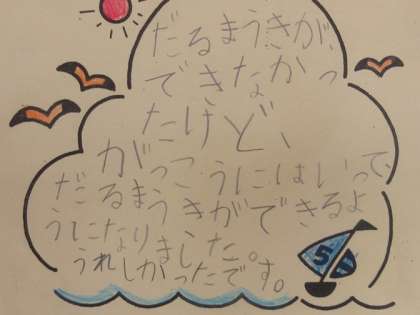 だるまうきが、
できなかっ
たけど、
がっこうにはいって、
だるまうきができるよ
うになりました。
うれしかったです。
5